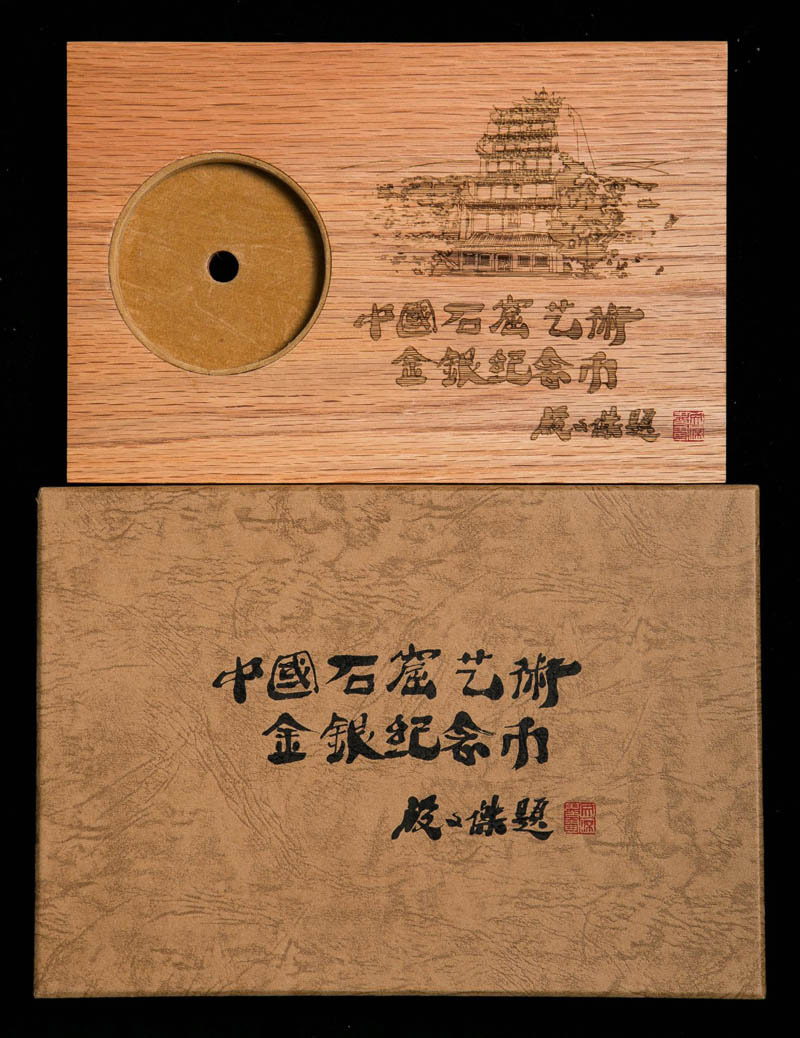 中國石窟艺術
金銀纪念币
段文傑題
中國石窟艺術
金銀纪念币
段文傑題